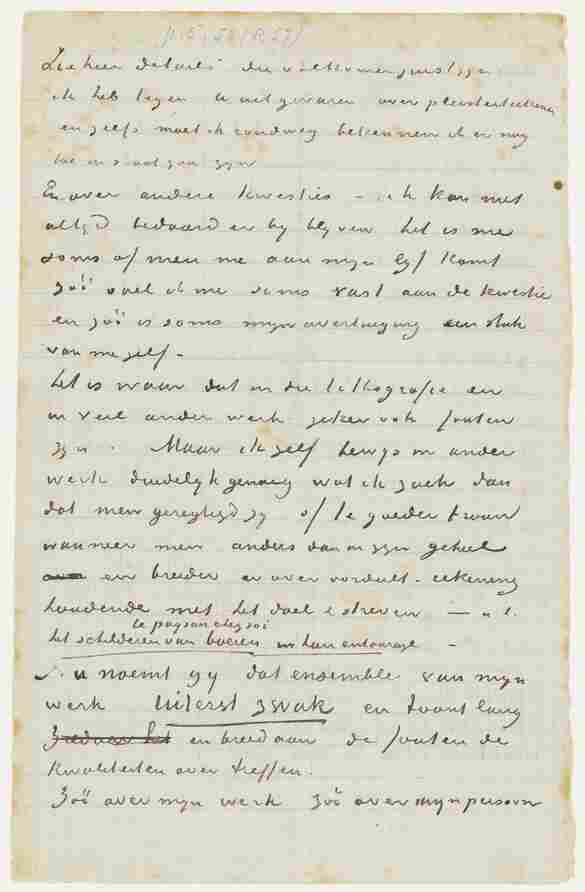 Zie hier details die volkomen juist zijn
ik heb tegen u uitgevaren over pleisterbeelden
en zelfs moet ik rondweg bekennen ik er nog
toe in staat zou zijn
En over andere kwesties – ik kan niet
altijd bedaard er bij blijven het is me
soms of men me aan mijn lijf komt
zóó voel ik me soms vast aan de kwestie
en zóó is soms mijn overtuiging een stuk
van me zelf –
Het is waar dat in die lithografie en
in veel ander werk zeker ook fouten
zijn. Maar ik zelf bewijs in ander
werk duidelijk genoeg wat ik zoek dan
dat men geregtigd zij of te goeder trouw
wanneer men anders dan in zijn geheel
en breeder er over oordeelt – rekening
houdende met het doel & streven –
le paysan chez soi
het schilderen van boeren in hun entourage –
u noemt gij dat ensemble van mijn
werk uiterst zwak en toont lang
en breed aan de fouten de
kwaliteiten over treffen.
Zóó over mijn werk zóó over mijn persoon